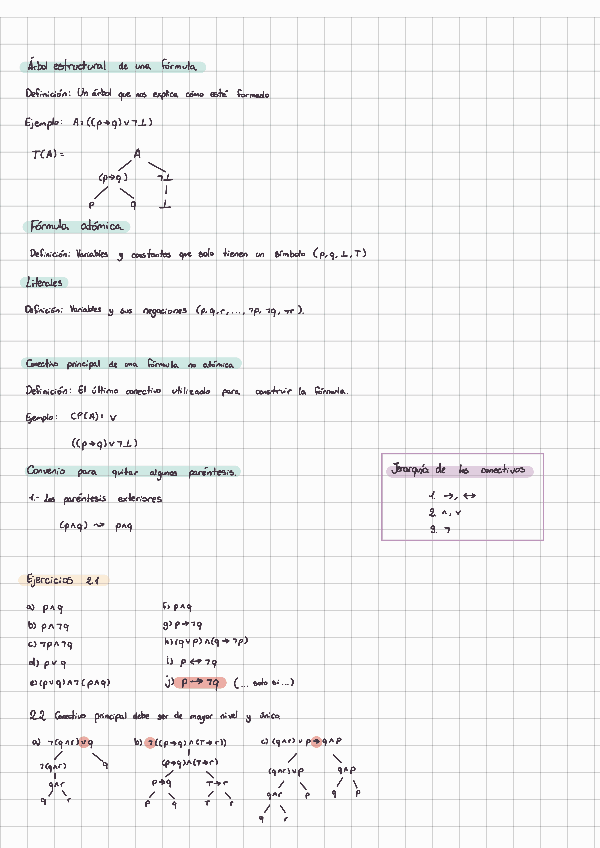 Árbol estructural de una fórmula
Definición: Un árbol que nos explica cómo está formado
Ejemplo: A: ((p→q)∨¬⊥)
T(A) = A
(p→q) ¬⊥
p q ⊥
Fórmula atómica
Definición: Variables y constantes que solo tienen un símbolo (p,q,⊥,T)
Literales
Definición: Variables y sus negaciones (p,q,r,...,¬p,¬q,¬r).
Conectivo principal de una fórmula no atómica
Definición: El último conectivo utilizado para construir la fórmula.
Ejemplo: CP(A): ∨
((p→q)∨¬⊥)
Convenio para quitar algunos paréntesis.
1.- Los paréntesis exteriores
(p∧q) ⇝ p∧q
Jerarquía de los conectivos
1. →, ↔
2. ∧, ∨
3. ¬
Ejercicios 2.1
a) p∧q
b) p∧¬q
c) ¬p∧¬q
d) p∨q
e) (p∨q)∧¬(p∧q)
f) p∧q
g) p→¬q
h) (q∨p)∧(q→¬p)
i) p↔¬q
j) p→¬q (... solo si ...)
2.2 Conectivo principal debe ser de mayor nivel y único
a) ¬(q∧r)∨q b) ¬((p→q)∧(T→r)) c) (q∧r)∨p→q∧p
¬(q∧r) q (p→q)∧(T→r) (q∧r)∨p q∧p
q∧r p→q T→r q∧r p q p
q r p q T r q r